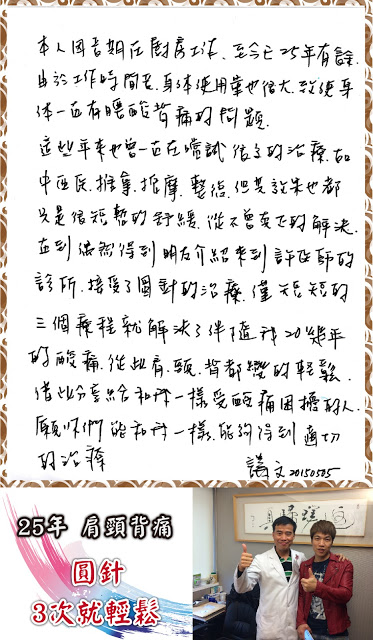 本人因長期在廚房工作,至今已25年有餘.
由於工作時間長,身体使用量也很大,致使身
体一直有腰酸背痛的問題.
這些年來也曾一直在嚐試很多的治療,如
中医民,推拿,按摩,整復,但其效果也都
只是很短暫的紓緩,從不曾真正的解決.
直到偶然得到朋友介紹來到許医師的
診所,接受了圓針的治療,僅短短的
三個療程就解決了伴隨我20幾年
的酸痛,從此肩,頸,背都變的輕鬆.
借此分享給和我一樣受酸痛困擾的人.
願你們能和我一樣,能夠得到適切
的治療
謹文 20150505
25年 肩頸背痛
圓針
3次就輕鬆